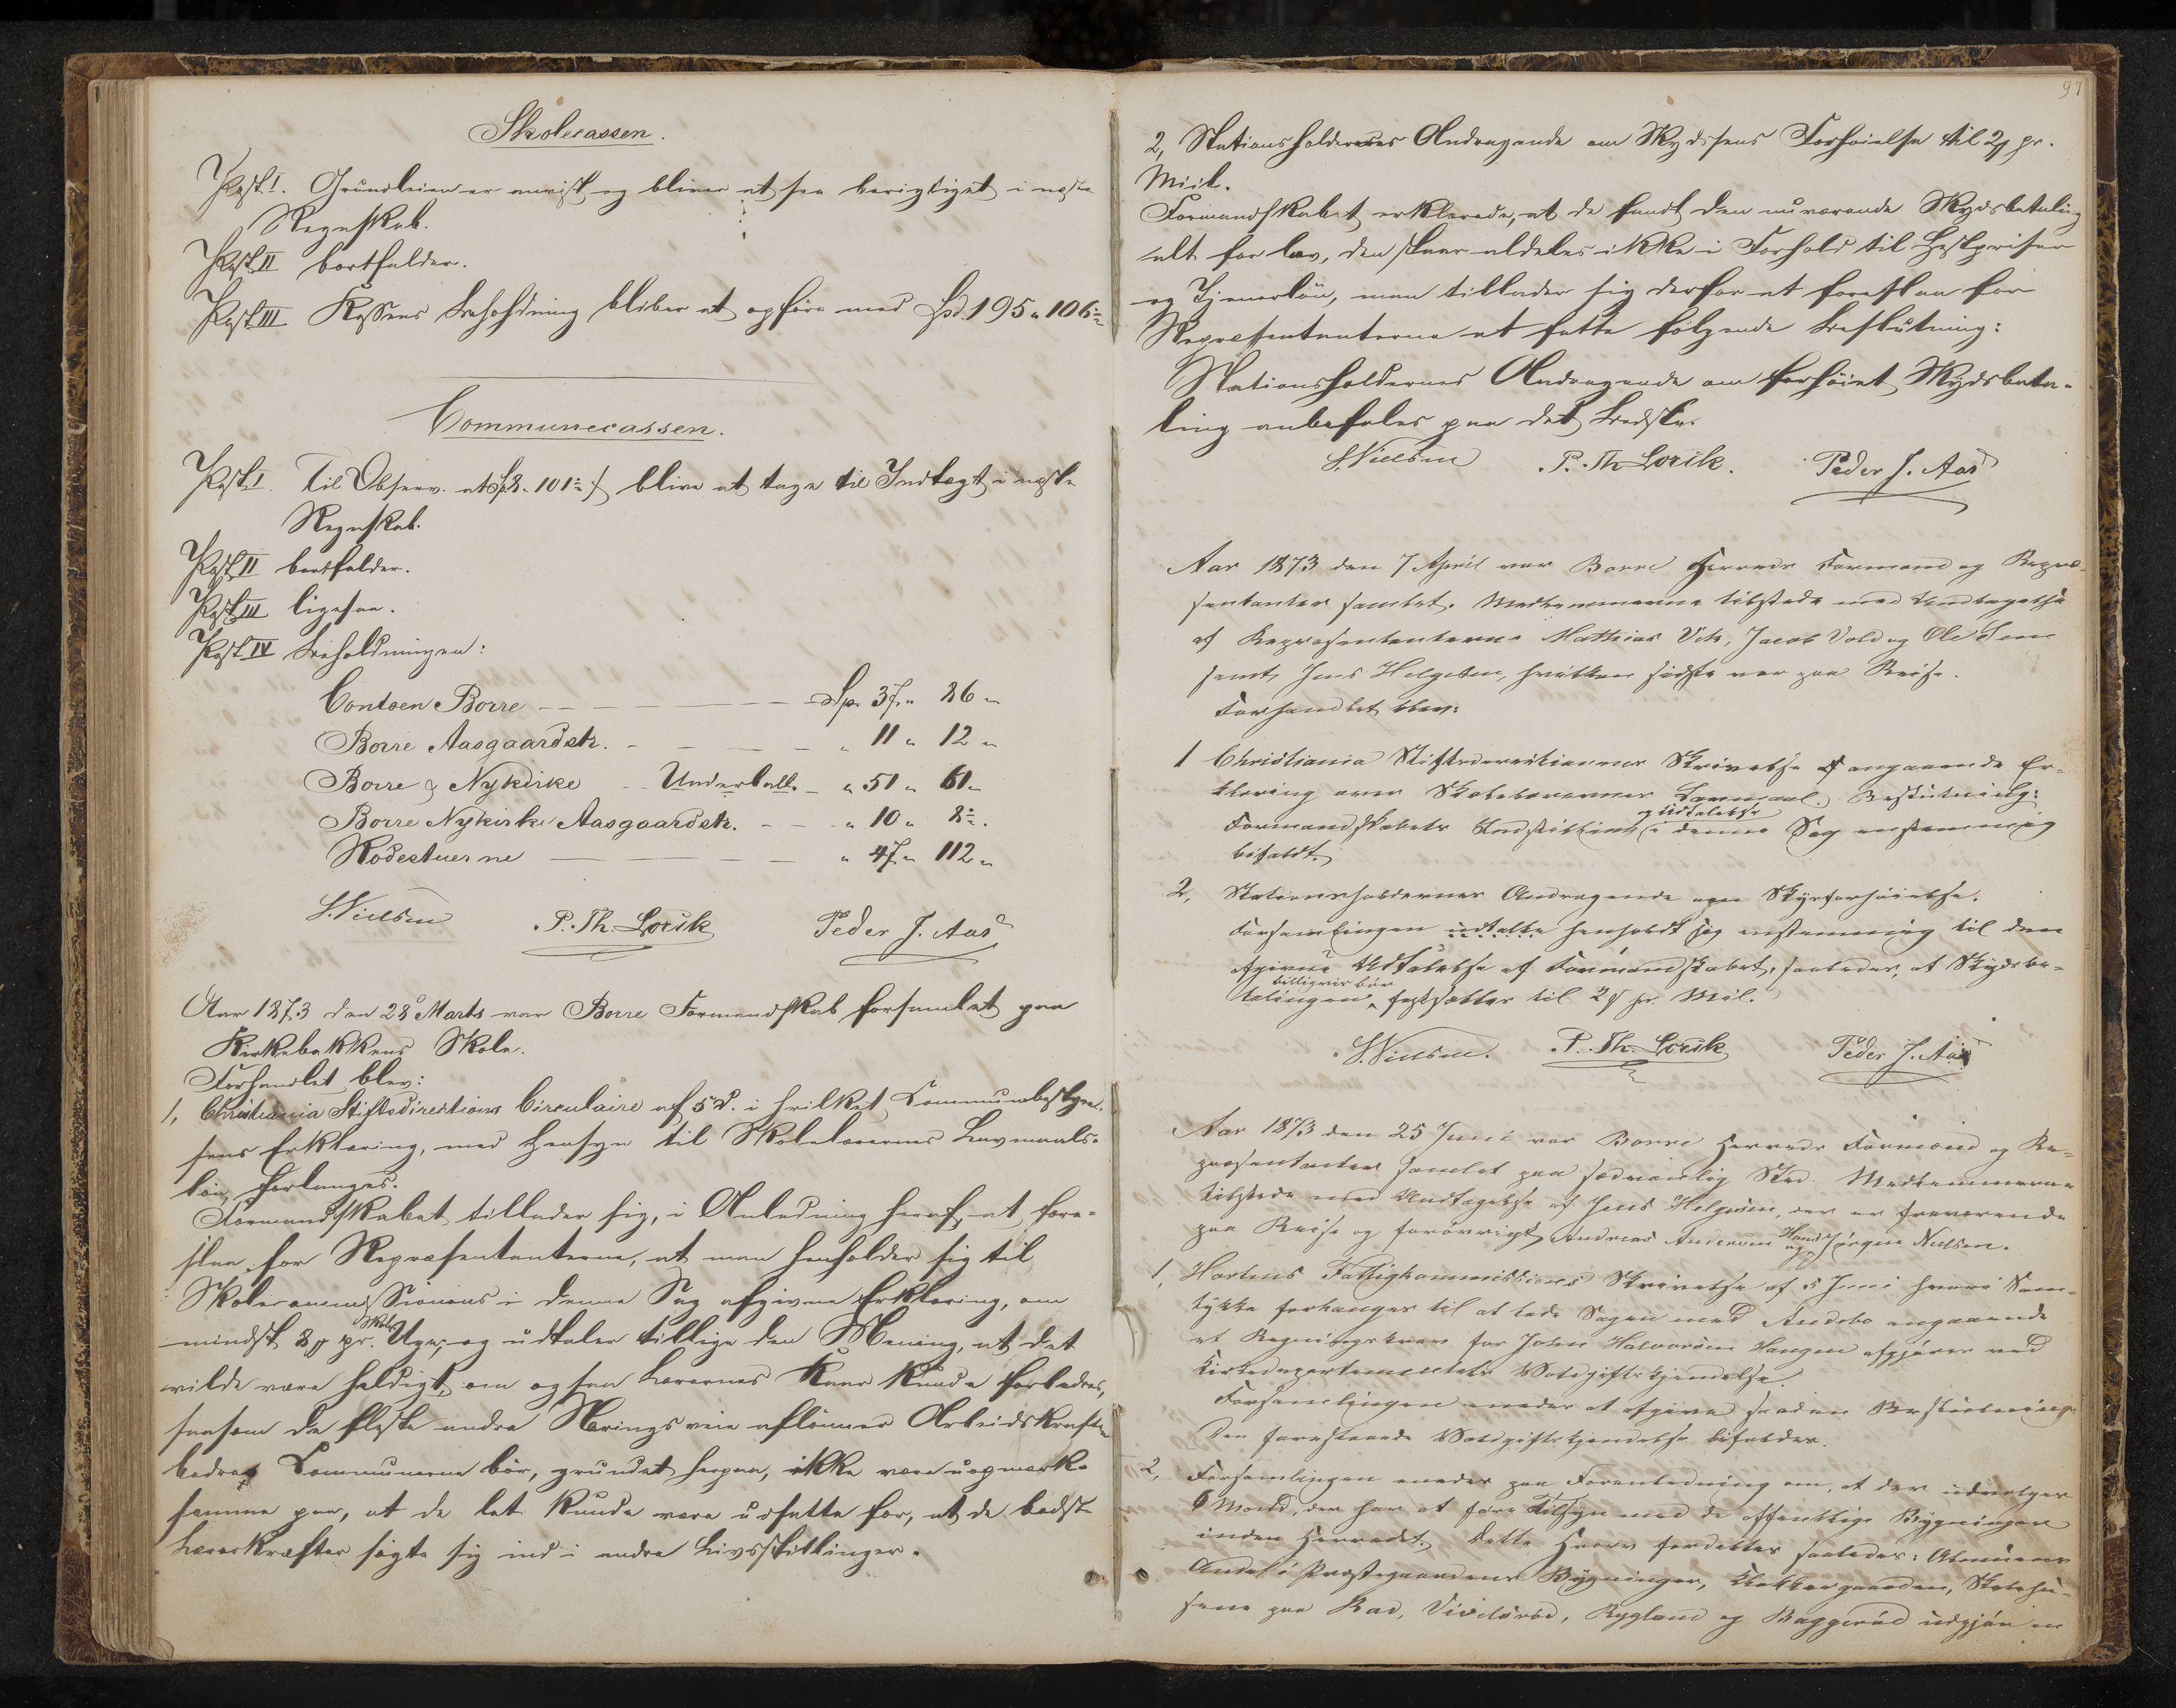 Skolecassen.
Post I. Grundleien er anvist og bliver at see berigtiget i næste
Regnskab.
Post II bortfalder.
Post III Kassens Beholdning bliver at opføre med Spd. 195 " 106
Communecassen.
Post I. Til Observ. at 101 blive at tage til Indtægt i næste
Regnskab.
Post II bortfalder.
Post III ligesaa.
Post IV Beholdningen:
Contoen Borre Sp. 37 " 86 "
Borre Aasgaardstr. " 11 " 12 "
Borre & Nykirke Underball. " 51 " 61 "
Borre Nykirke Aasgaardstr. " 10 " 8 "
Rodestuerne " 47 " 112 "
S. Nielsen P. Th. Lorik Peder J. Aas
Aar 1873 den 28 Marts var Borre Formandskab forsamlet paa
Kirkebakkens Skole.
Forhandlet blev:
1, Christiania Stiftsdirections Circulaire af 5 d. i hvilket Communebestyrel-
sens Erklæring, med Hensyn til Skolelærernes Lavmaals-
løn, forlanges.
Formandskabet tillader sig, i Anledning heraf, at fore-
slaa for Repræsentanterne, at man henholder sig til
Skolecommissionens i denne Sag afgivne Erklæring, om
mindst pr. Skole Uge, og udtaler tillige den Mening, at det
vilde være heldigt, om ogsaa Lærernes Kaar kunde forbedres,
saasom de fleste andre Næringsveie aflønner Arbeidskraften
bedre. Communerne bør, grundet herpaa, ikke være uopmærk-
somme paa, at de let kunde være udsatte for, at de bedste
Lærerkræfter søgte sig ind i andre Livsstillinger.
97
2, Stationsholdernes Andragende om Skydsens Forhøielse til 2 pr.
Miil.
Formandskabet erklærede, at de fandt den nuværende Skydsbetaling
alt for lav, den staar aldeles ikke i Forhold til Hestepriser
og Tjenerløn, man tillader sig derfor at foreslaa for
Repræsentanterne at fatte følgende Beslutning:
Stationsholdernes Andragende om forhøiet Skydsbeta-
ling anbefales paa det Bedste.
S. Nielsen P. Th Lorik. Peder J. Aas
Aar 1873 den 7 April var Borre Herreds Formænd og Repræ-
sentanter samlet. Medlemmerne tilstede med Undtagelse
af Repræsentanterne Mathias Vik, Jacob Vold og Ole
samt Jens Helgesen, hvilken sidste var paa Reise.
Forhandlet blev:
1 Christiania Stiftsdirectionens Skrivelse angaaende Er-
klæring over Skolelærernes Lavmaal. Beslutning:
Formandskabets Indstilling og Udtalelse i denne Sag enstemmig
bifaldt.
2, Stationsholdernes Andragende om Skydsforhøielse.
Forsamlingen udtalte henholdt sig enstemmig til den
afgivne Udtalelse af Formandskabet, saaledes, at Skydsbe-
talingen billigviis bør fastsættes til 2 pr. Mil.
S. Nielsen. P. Th. Lorik Peder J. Aas
Aar 1873 den 25 Juni var Borre Herreds Formænd og Re-
præsentanter samlet paa sædvanlig Sted. Medlemmerne
tilstede med Undtagelse af Jens Helgesen, der er fraværende
paa Reise og forøvrigt Andreas Andersen og Hans Jørgen Nielsen.
1, Hortens Fattigkommissions Skrivelse af 5 Juni hvori Sam-
tykke forlanges til at lade Sagen med Andebo angaaende
et Regningskrav for John Halvorsen Haugen afgjøres ved
Kirkedepartementets Voldgiftskjendelse.
Forsamlingen enedes at afgive saadan Beslutning:
Den foreslaaede Voldgiftskjendelse bifaldes.
2, Forsamlingen enedes paa Foranledning om, at der udvælges
6 Mænd, der har at føre Tilsyn med de offentlige Bygninger
inden Herredet. Dette Hverv fordeltes saaledes: Almuens
Andel i Præstegaardens Bygninger, Klokkergaarden, Skolehu-
sene paa Rød, Viulsrød, Rygland og Baggerød udgjør en